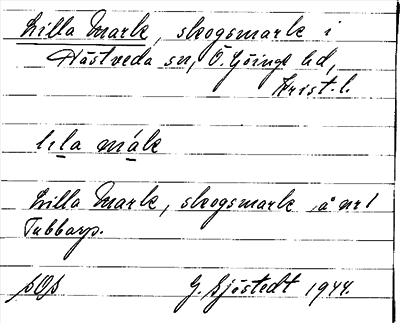 Lilla Mark, skogsmark i
Hästveda sn, Ö. Göinge hd,
Krist. l.
lıla mák
Lilla Mark, skogsmark å nr 1
Tubbarp.
SOS G. Sjöstedt 1944.